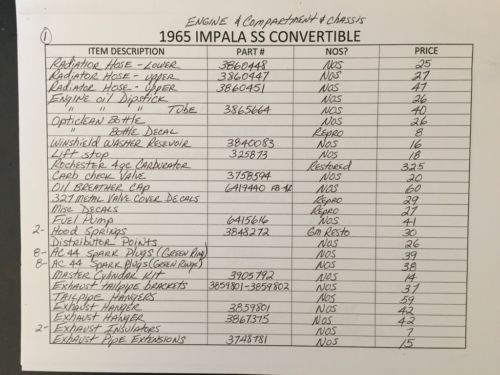 ENGINE & COMPARTMENT & CHASSIS
1 1965 IMPALA SS CONVERTIBLE
ITEM DESCRIPTION PART # NOS? PRICE
RADIATIOR HOSE - LOWER 3860448 NOS 25
RADIATOR HOSE - UPPER 3860447 NOS 27
RADIATOR HOSE - UPPER 3860451 NOS 47
ENGINE OIL DIPSTICK NOS 26
" " " TUBE 3865664 NOS 40
OPTICLEAN BOTTLE NOS 26
" BOTTLE DECAL REPRO 8
WINSHIELD WASHER RESEVOIR 3840083 NOS 16
LIFT STOP 325873 NOS 18
ROCHESTER 4GC CARBURATOR RESTORED 325
CARB CHECK VALVE 3758594 NOS 20
OIL BREATHER CAP 6419440 NOS 60
327 METAL VALVE COVER DECALS REPRO 29
MISC DECALS REPRO 27
FUEL PUMP 6415616 NOS 41
2- HOOD SPRINGS 3848272 GM RESTO 30
DISTRIBUTOR POINTS NOS 26
8- AC 44 SPARK PLUGS (GREEN RING) NOS 39
8- AC 44 SPARK PLUGS (GREEN RINGS) NOS 38
MASTER CYLINDAR KIT 3905792 NOS 14
EXHAUST TAILPIPE BRACKETS 3859801-3859802 NOS 37
TAILPIPE HANGERS NOS 59
EXHAUST HANGER 3859801 NOS 42
EXHAUST HANGER 3867375 NOS 42
2- EXHAUST INSULATORS NOS 7
EXHAUST PIPE EXTENSIONS 3748781 NOS 15